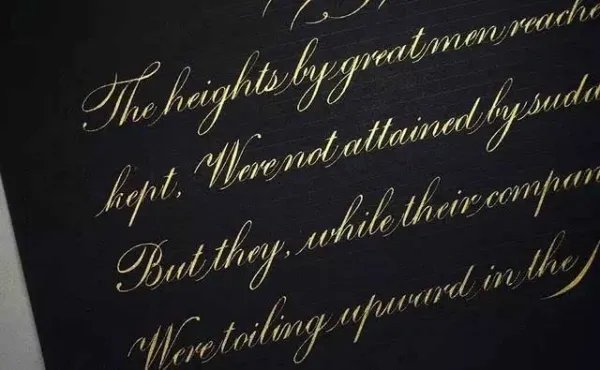 The heights by great men reache
kept, Were not attained by sudd
But they, while their compan
Were toiling upward in the